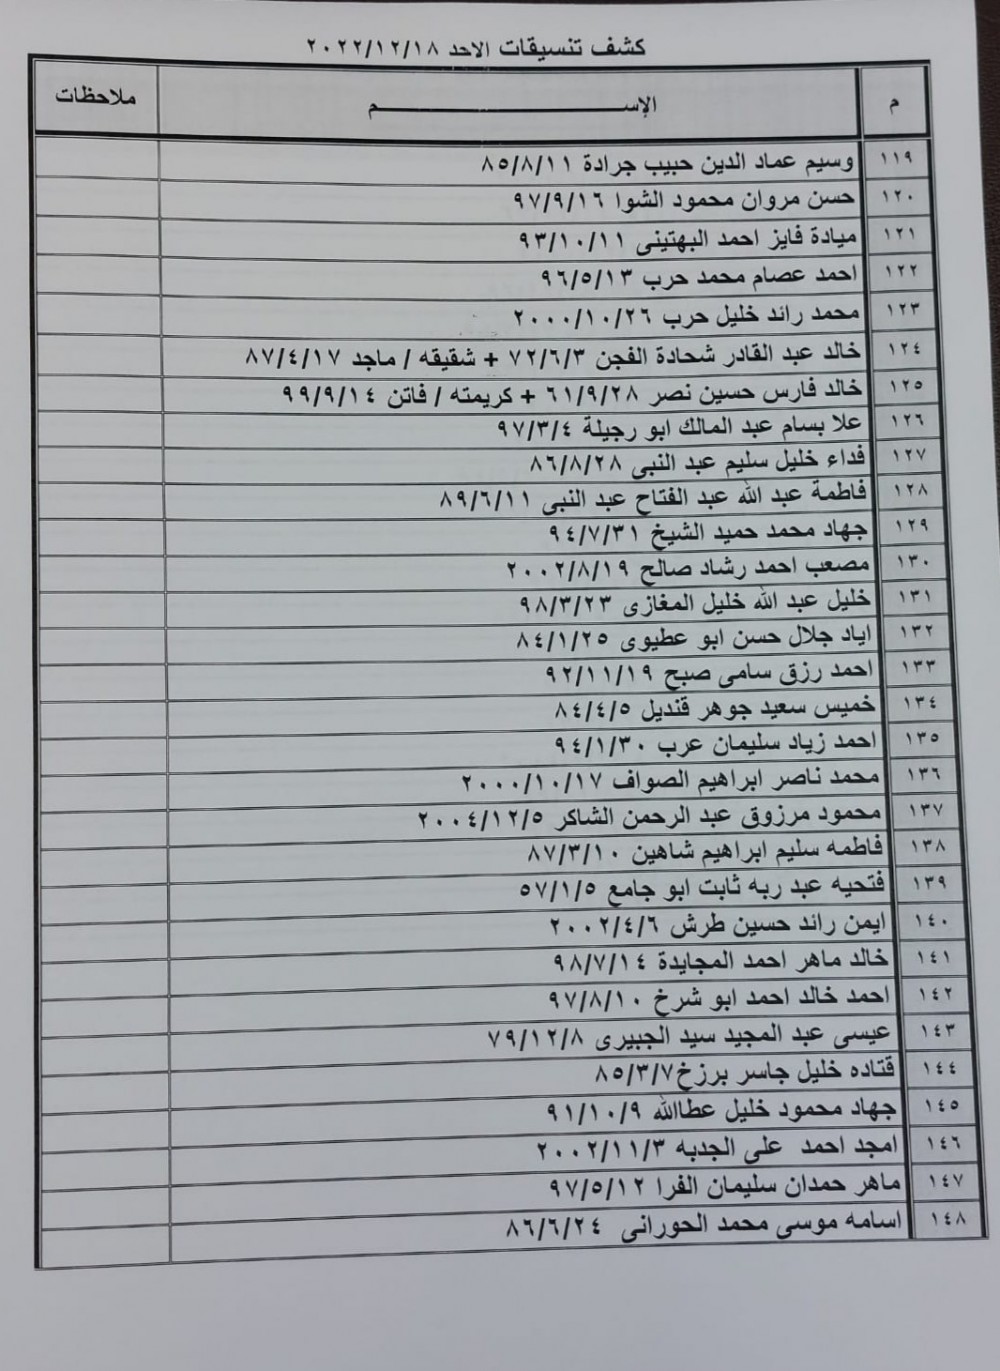 كشف تنسيقات الاحد ٢٠٢٢/١٢/١٨
م الإســـــــــم ملاحظات
١١٩ وسيم عماد الدين حبيب جرادة ٨٥/٨/١١
١٢٠ حسن مروان محمود الشوا ٩٧/٩/١٦
١٢١ ميادة فايز احمد البهتينى ٩٣/١٠/١١
١٢٢ احمد عصام محمد حرب ٩٦/٥/١٣
١٢٣ محمد رائد خليل حرب ٢٠٠٠/١٠/٢٦
١٢٤ خالد عبد القادر شحادة الفجن ٧٢/٦/٣ + شقيقه / ماجد ٨٧/٤/١٧
١٢٥ خالد فارس حسين نصر ٦١/٩/٢٨ + كريمته / فاتن ٩٩/٩/١٤
١٢٦ علا بسام عبد المالك ابو رجيلة ٩٧/٣/٤
١٢٧ فداء خليل سليم عبد النبى ٨٦/٨/٢٨
١٢٨ فاطمة عبد الله عبد الفتاح عبد النبى ٨٩/٦/١١
١٢٩ جهاد محمد حميد الشيخ ٩٤/٧/٣١
١٣٠ مصعب احمد رشاد صالح ٢٠٠٢/٨/١٩
١٣١ خليل عبد الله خليل المغازى ٩٨/٣/٢٣
١٣٢ اياد جلال حسن ابو عطيوى ٨٤/١/٢٥
١٣٣ احمد رزق سامى صبح ٩٢/١١/١٩
١٣٤ خميس سعيد جوهر قنديل ٨٤/٤/٥
١٣٥ احمد زياد سليمان عرب ٩٤/١/٣٠
١٣٦ محمد ناصر ابراهيم الصواف ٢٠٠٠/١٠/١٧
١٣٧ محمود مرزوق عبد الرحمن الشاكر ٢٠٠٤/١٢/٥
١٣٨ فاطمه سليم ابراهيم شاهين ٨٧/٣/١٠
١٣٩ فتحيه عبد ربه ثابت ابو جامع ٥٧/١/٥
١٤٠ ايمن رائد حسين طرش ٢٠٠٢/٤/٦
١٤١ خالد ماهر احمد المجايدة ٩٨/٧/١٤
١٤٢ احمد خالد احمد ابو شرخ ٩٧/٨/١٠
١٤٣ عيسى عبد المجيد سيد الجبيرى ٧٩/١٢/٨
١٤٤ قتاده خليل جاسر برزخ٨٥/٣/٧
١٤٥ جهاد محمود خليل عطاالله ٩١/١٠/٩
١٤٦ امجد احمد على الجدبه ٢٠٠٢/١١/٣
١٤٧ ماهر حمدان سليمان الفرا ٩٧/٥/١٢
١٤٨ اسامه موسى محمد الحورانى ٨٦/٦/٢٤